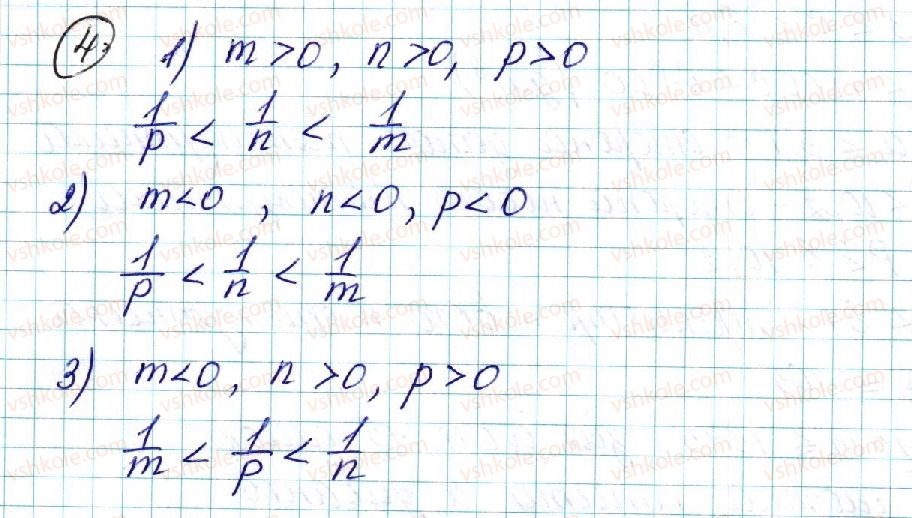 4. 1) m > 0, n > 0, p > 0
1/p < 1/n < 1/m
2) m < 0, n < 0, p < 0
1/p < 1/n < 1/m
3) m < 0, n > 0, p > 0
1/m < 1/p < 1/n
vshkole.com